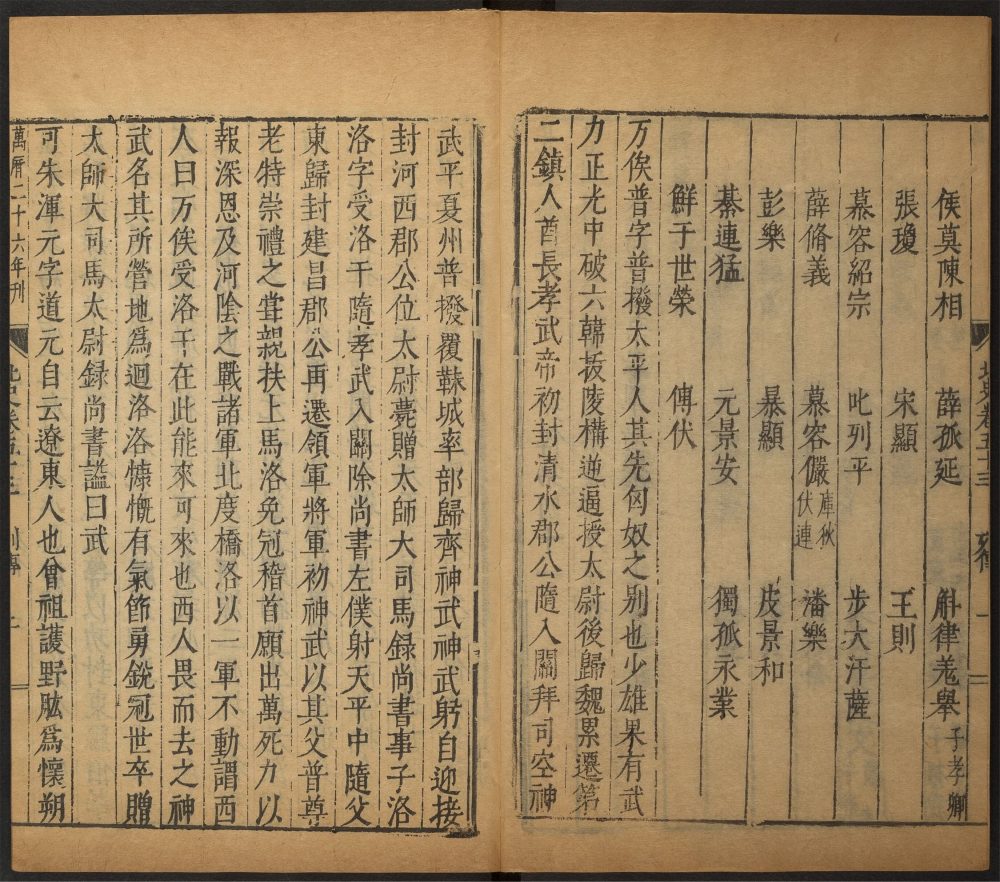 北史卷五十三 列傳 一
侯莫陳相 薛孤延 斛律羌舉子孝卿
張瓊 宋顯 王則
慕容紹宗 叱列平 步大汗薩
薛脩義 慕容儼厙狄伏連 潘樂
彭樂 暴顯 皮景和
綦連猛 元景安 獨孤永業
鮮于世榮 傅伏
万俟普字普撥太平人其先匈奴之别也少雄果有武
力正光中破六韓拔陵構逆逼授太尉後歸魏累遷第
二鎮人酋長孝武帝初封清水郡公隨入關拜司空神
武平夏州普撥覆靺城率部歸齊神武神武躬自迎接
封河西郡公位太尉薨贈太師大司馬録尚書事子洛
洛字受洛干隨孝武入關除尚書左僕射天平中隨父
東歸封建昌郡公再遷領軍將軍初神武以其父普尊
老特崇禮之甞親扶上馬洛免冠稽首願出萬死力以
報深恩及河陰之戰諸軍北度橋洛以一軍不動謂西
人曰万俟受洛干在此能來可來也西人畏而去之神
武名其所營地爲迴洛洛慷慨有氣節勇銳冠世卒贈
太師大司馬太尉録尚書謚曰武
可朱渾元字道元自云遼東人也曾祖護野肱爲懷朔
萬曆二十六年刊 北史卷五十三 列傳 二